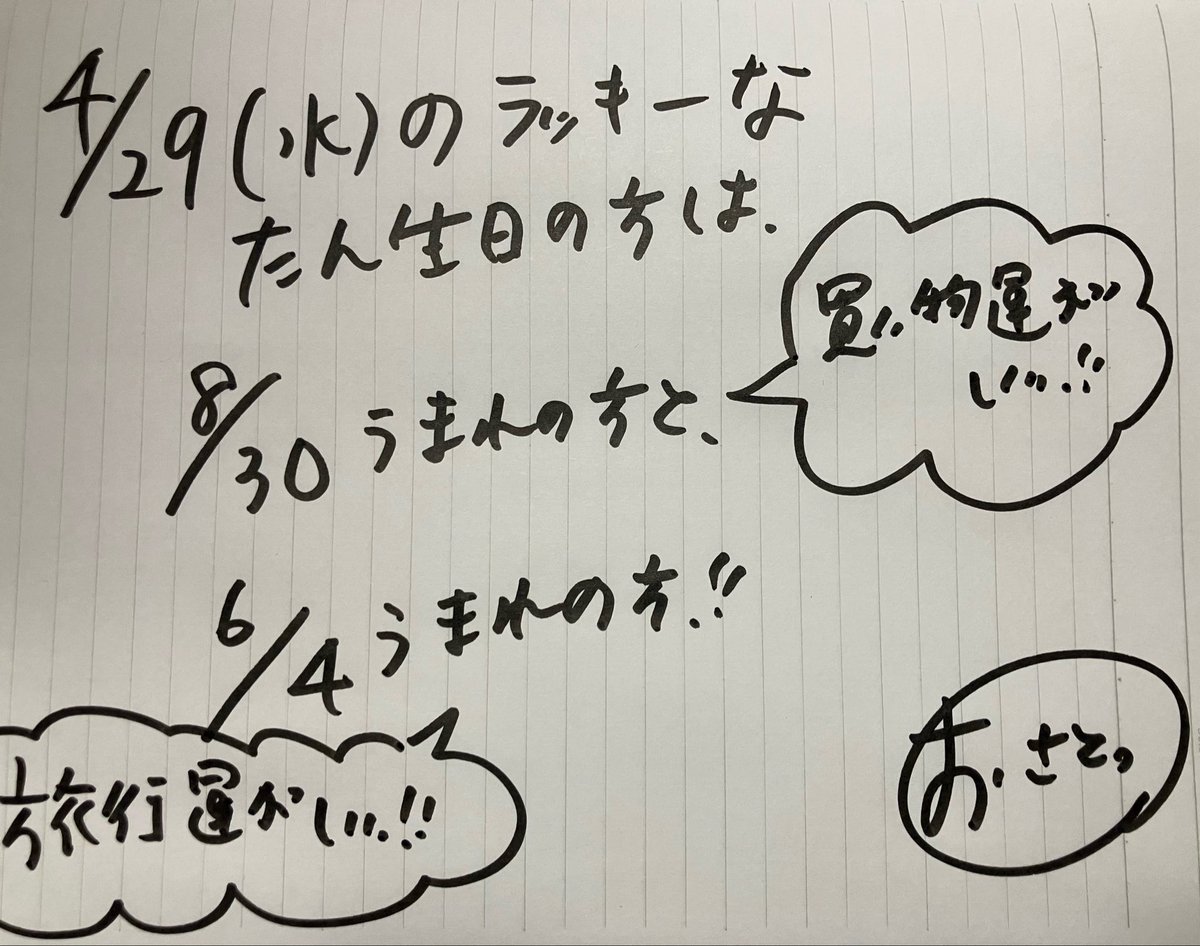 4/29(水)のラッキーな
たん生日の方は、
買い物運が
いい!!
8/30 うまれの方と、
6/4 うまれの方!!
旅行運がいい!!
お、さとっ